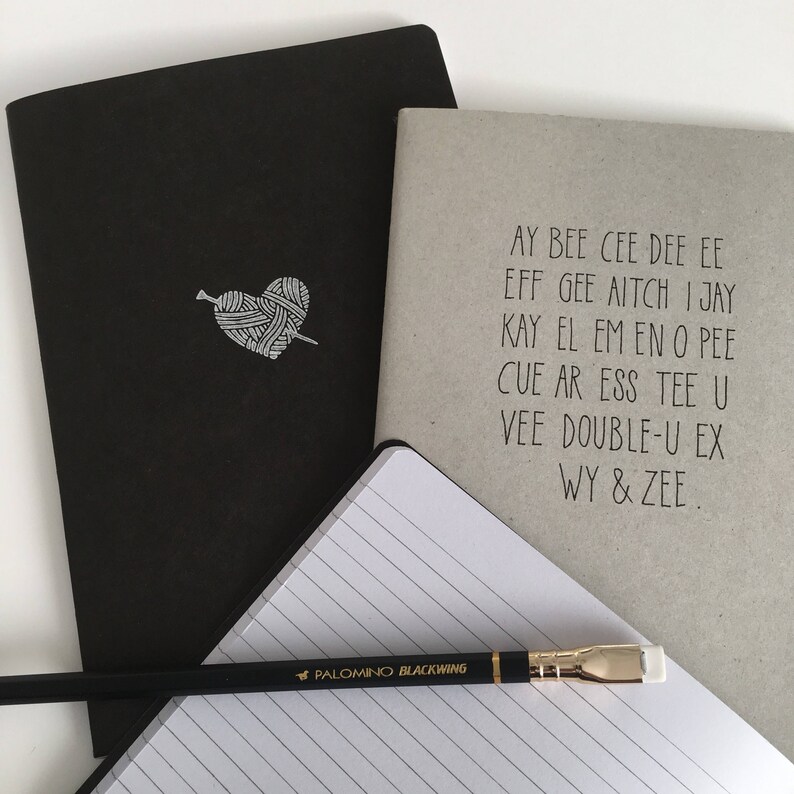 AY BEE CEE DEE EE
EFF GEE AITCH I JAY
KAY EL EM EN O PEE
CUE AR ESS TEE U
VEE DOUBLE-U EX
WY & ZEE.
PALOMINO BLACKWING